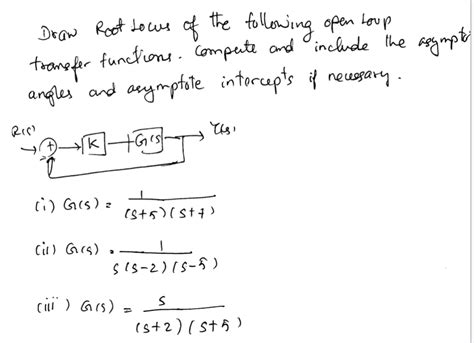 Draw Root Locus of the following open loop
transfer functions. compute and include the asymptote
angles and asymptote intercepts if necessary.
R(s) + K G(s) Y(s)
(i) G(s) = 1 / (s+5)(s+7)
(ii) G(s) = 1 / s(s-2)(s-5)
(iii) G(s) = s / (s+2)(s+5)